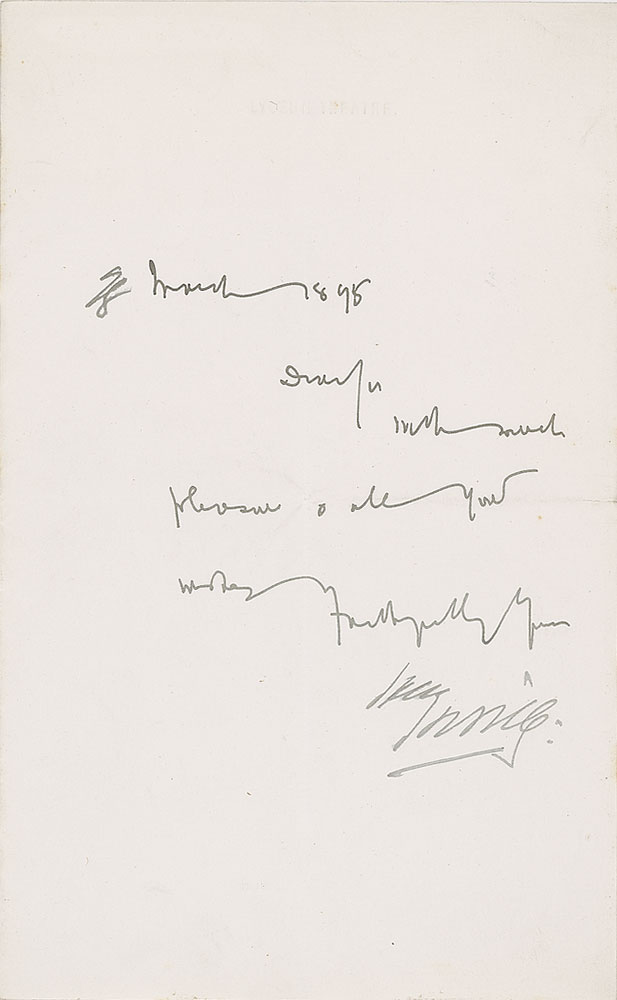 LYCEUM THEATRE.
March 1895
Dear Sir
With much
pleasure & all your
wishes
Faithfully Yours
Henry Irving.